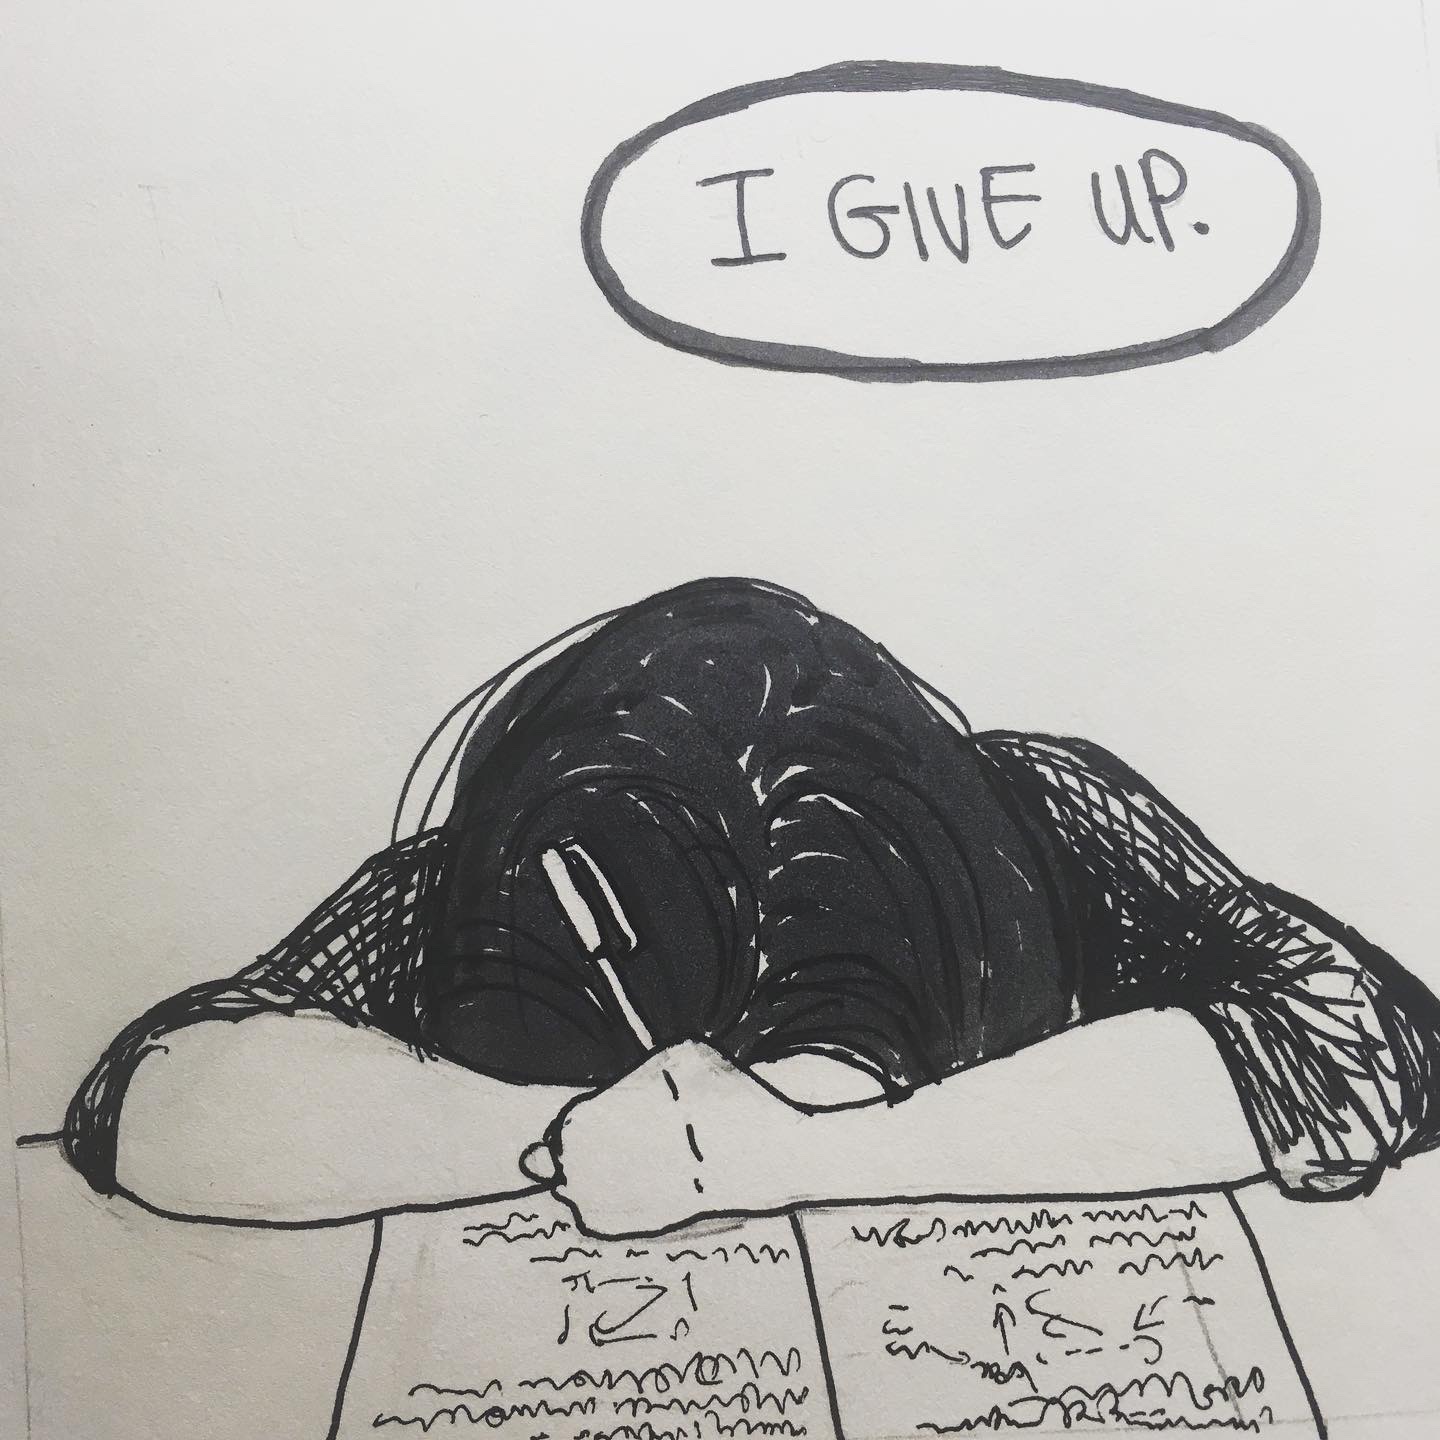 I GIVE UP.